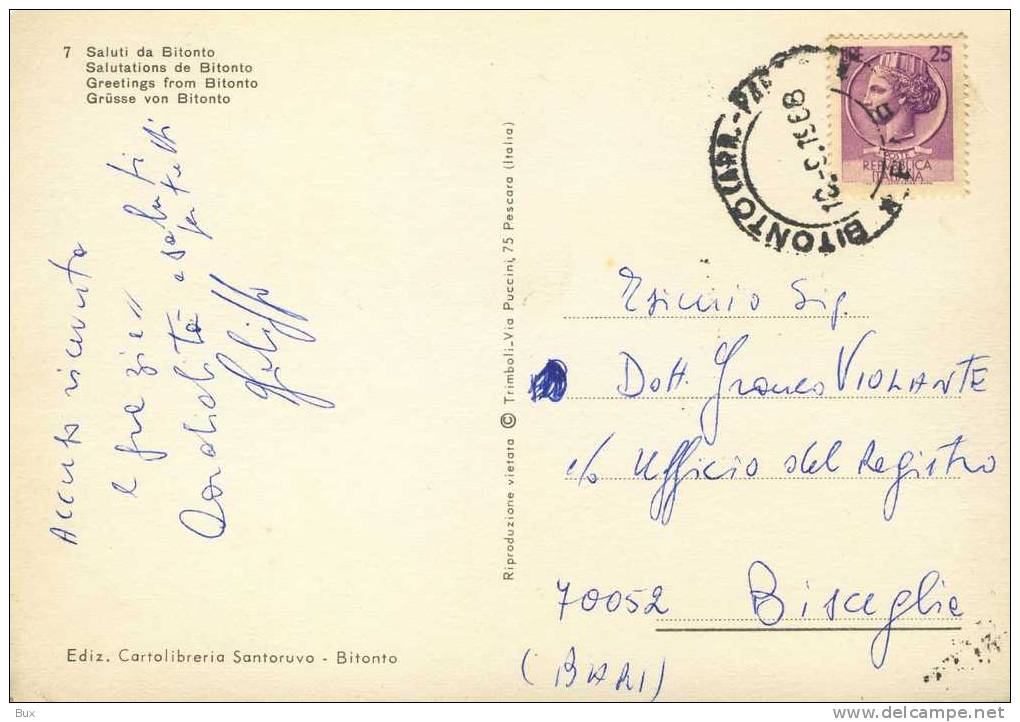 7 Saluti da Bitonto
Salutations de Bitonto
Greetings from Bitonto
Grüsse von Bitonto
LIRE 25
POSTE
REPUBBLICA
ITALIANA
BITONTO (ARR.-PAR
Accuso ricevuta
e grazie
Cordialità e saluti
per tutti
Riproduzione vietata © Trimboli-Via Puccini, 75 Pescara (Italia)
Sig.
Dott. Franco VIOLANTE
c/o Ufficio del Registro
70052 Bisceglie
(BARI)
Ediz. Cartolibreria Santoruvo - Bitonto
Bux
www.delcampe.net